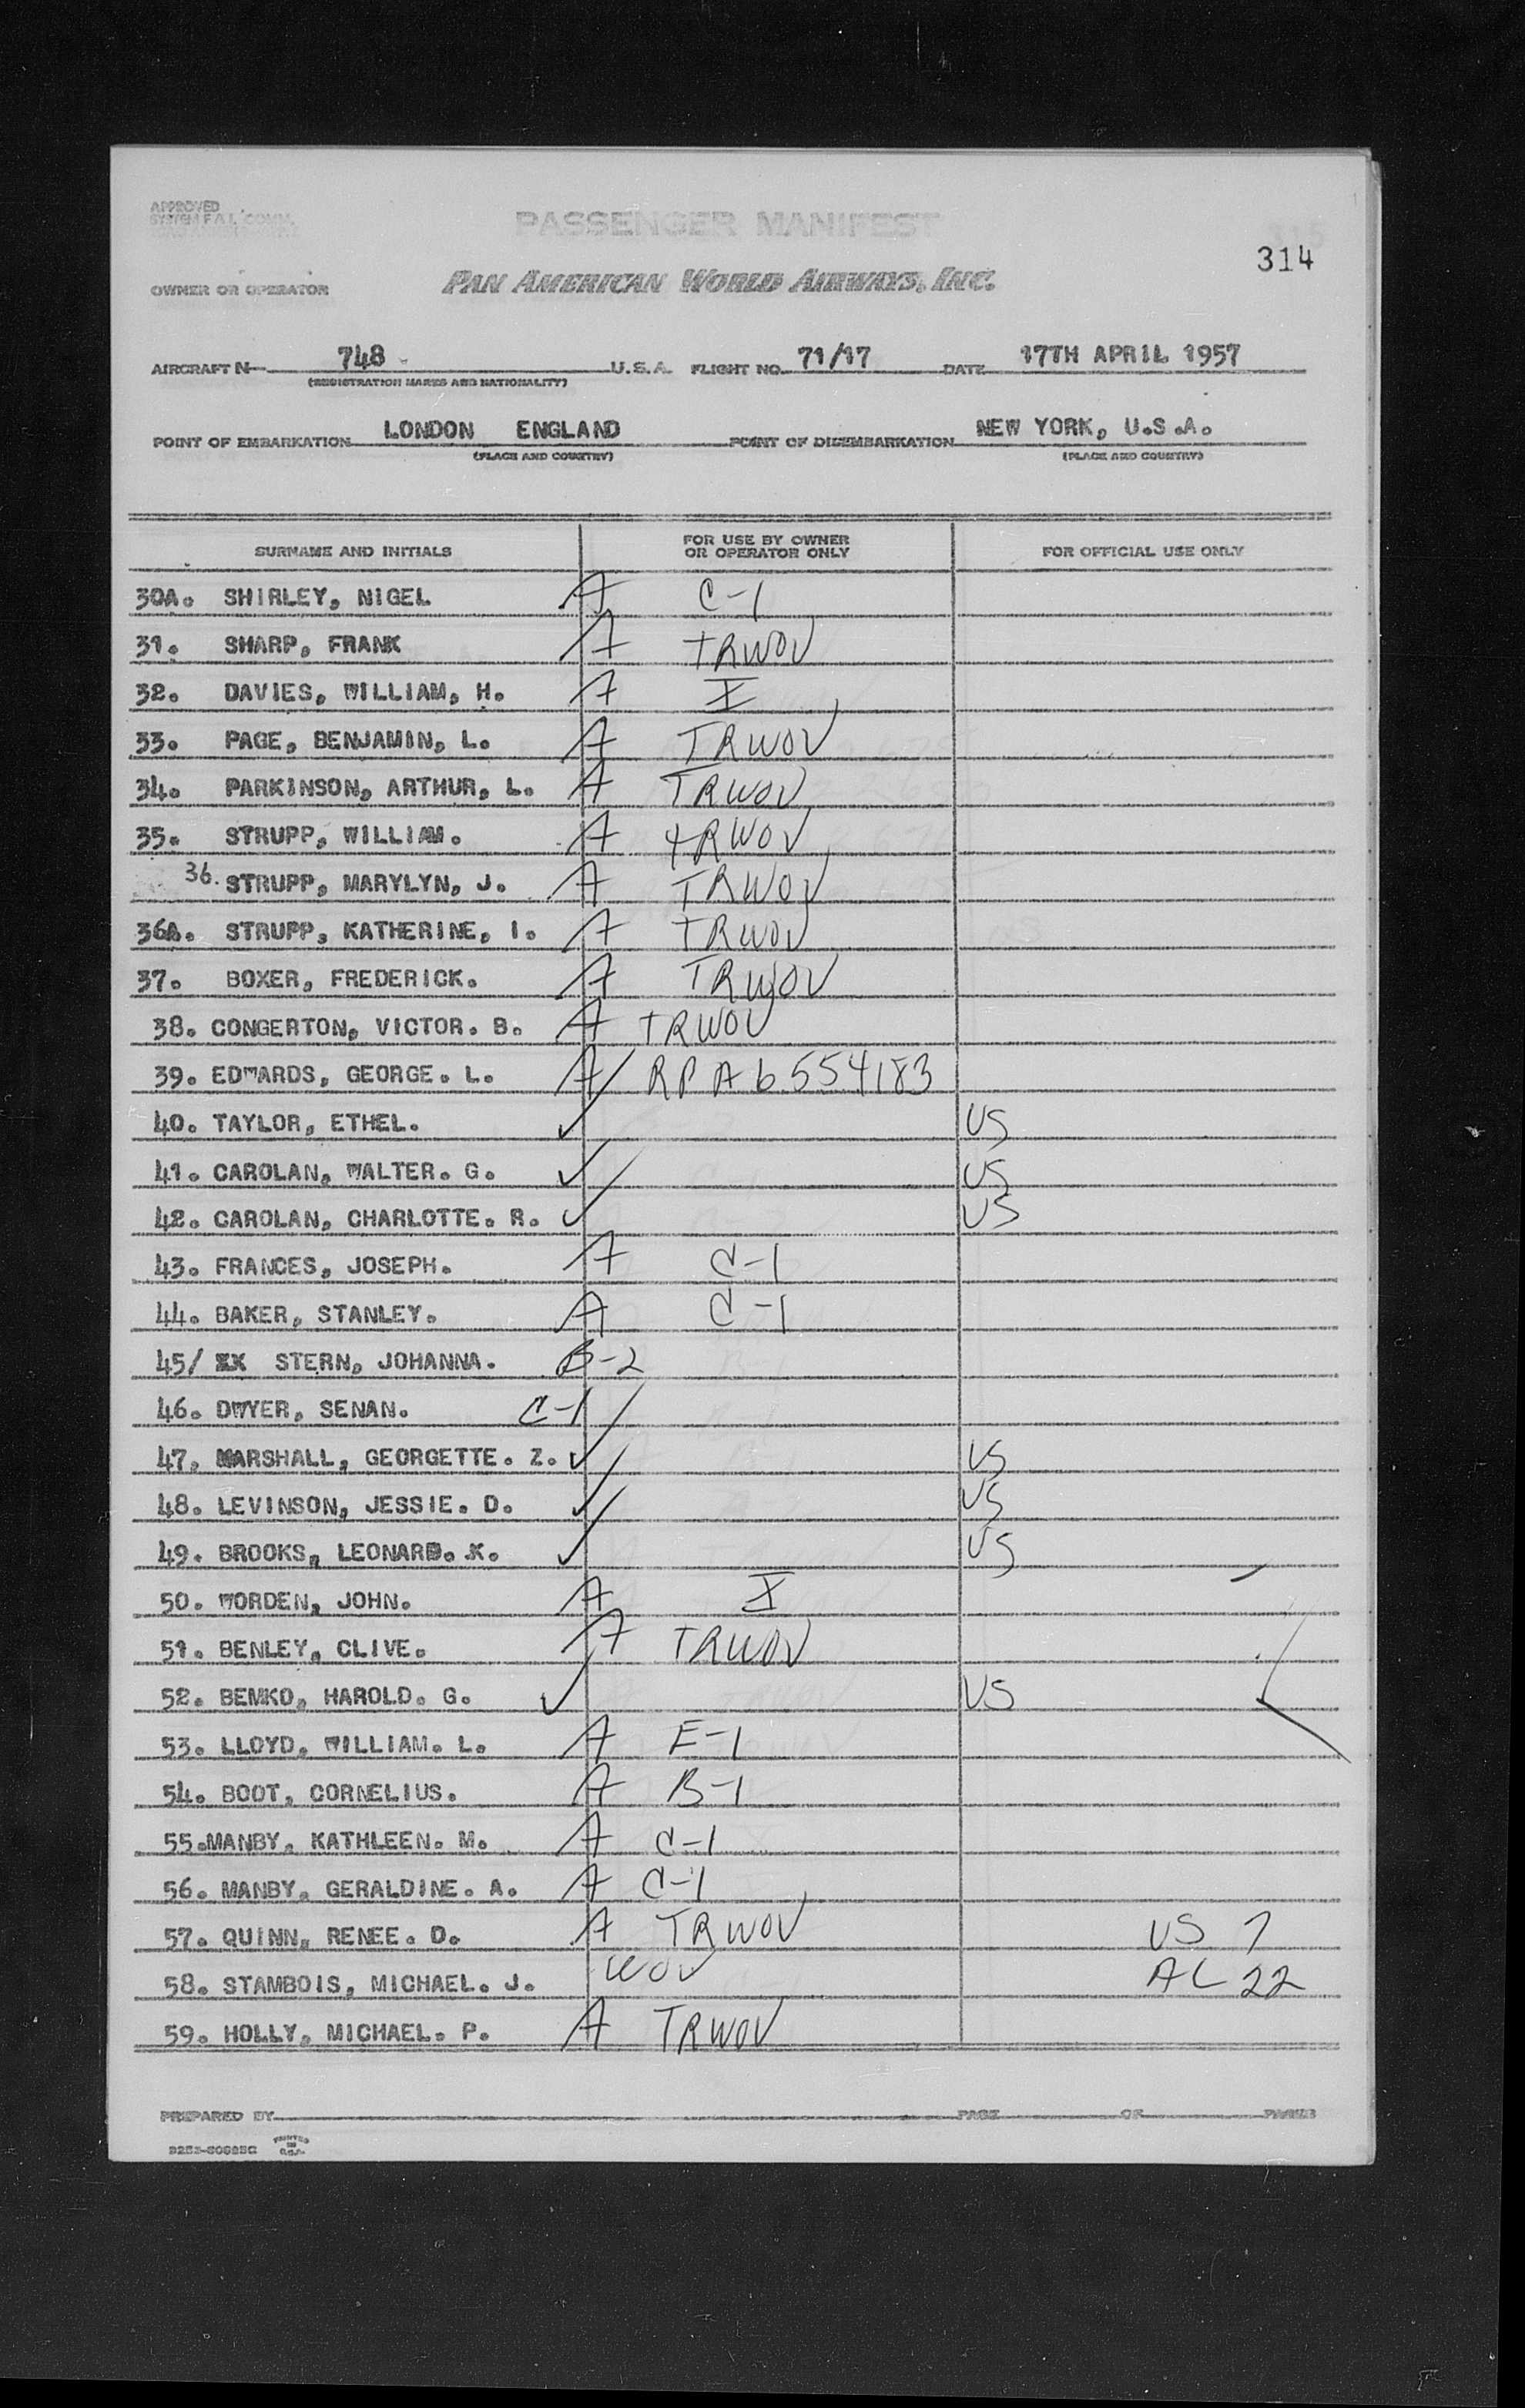 APPROVED
PASSENGER MANIFEST
314
OWNER OR OPERATOR PAN AMERICAN WORLD AIRWAYS, INC.
AIRCRAFT N 748 U.S.A. FLIGHT NO. 71/17 DATE 17TH APRIL 1957
(REGISTRATION MARKS AND NATIONALITY)
POINT OF EMBARKATION LONDON ENGLAND POINT OF DISEMBARKATION NEW YORK, U.S.A.
(PLACE AND COUNTRY) (PLACE AND COUNTRY)
SURNAME AND INITIALS FOR USE BY OWNER OR OPERATOR ONLY FOR OFFICIAL USE ONLY
30A. SHIRLEY, NIGEL A C-1
31. SHARP, FRANK A TRWOV
32. DAVIES, WILLIAM, H. A I
33. PAGE, BENJAMIN, L. A TRWOV
34. PARKINSON, ARTHUR, L. A TRWOV
35. STRUPP, WILLIAM. A TRWOV
36. STRUPP, MARYLYN, J. A TRWOV
36A. STRUPP, KATHERINE, I. A TRWOV
37. BOXER, FREDERICK. A TRWOV
38. CONGERTON, VICTOR. B. A TRWOV
39. EDWARDS, GEORGE. L. A RP A6 554183
40. TAYLOR, ETHEL. ✓ US
41. CAROLAN, WALTER. G. ✓ US
42. CAROLAN, CHARLOTTE. R. ✓ US
43. FRANCES, JOSEPH. A C-1
44. BAKER, STANLEY. A C-1
45/ XX STERN, JOHANNA. B-2
46. DWYER, SENAN. C-1
47. MARSHALL, GEORGETTE. Z. ✓ US
48. LEVINSON, JESSIE. D. ✓ US
49. BROOKS, LEONARD. K. ✓ US
50. WORDEN, JOHN. A I
51. BENLEY, CLIVE. A TRWOV
52. BEMKO, HAROLD. G. ✓ US
53. LLOYD, WILLIAM. L. A E-1
54. BOOT, CORNELIUS. A B-1
55. MANBY, KATHLEEN. M. A C-1
56. MANBY, GERALDINE. A. A C-1
57. QUINN, RENEE. D. A TRWOV US 7
58. STAMBOIS, MICHAEL. J. WOV AL 22
59. HOLLY, MICHAEL. P. A TRWOV
PREPARED BY PAGE OF PAGES
PRINTED IN U.S.A.